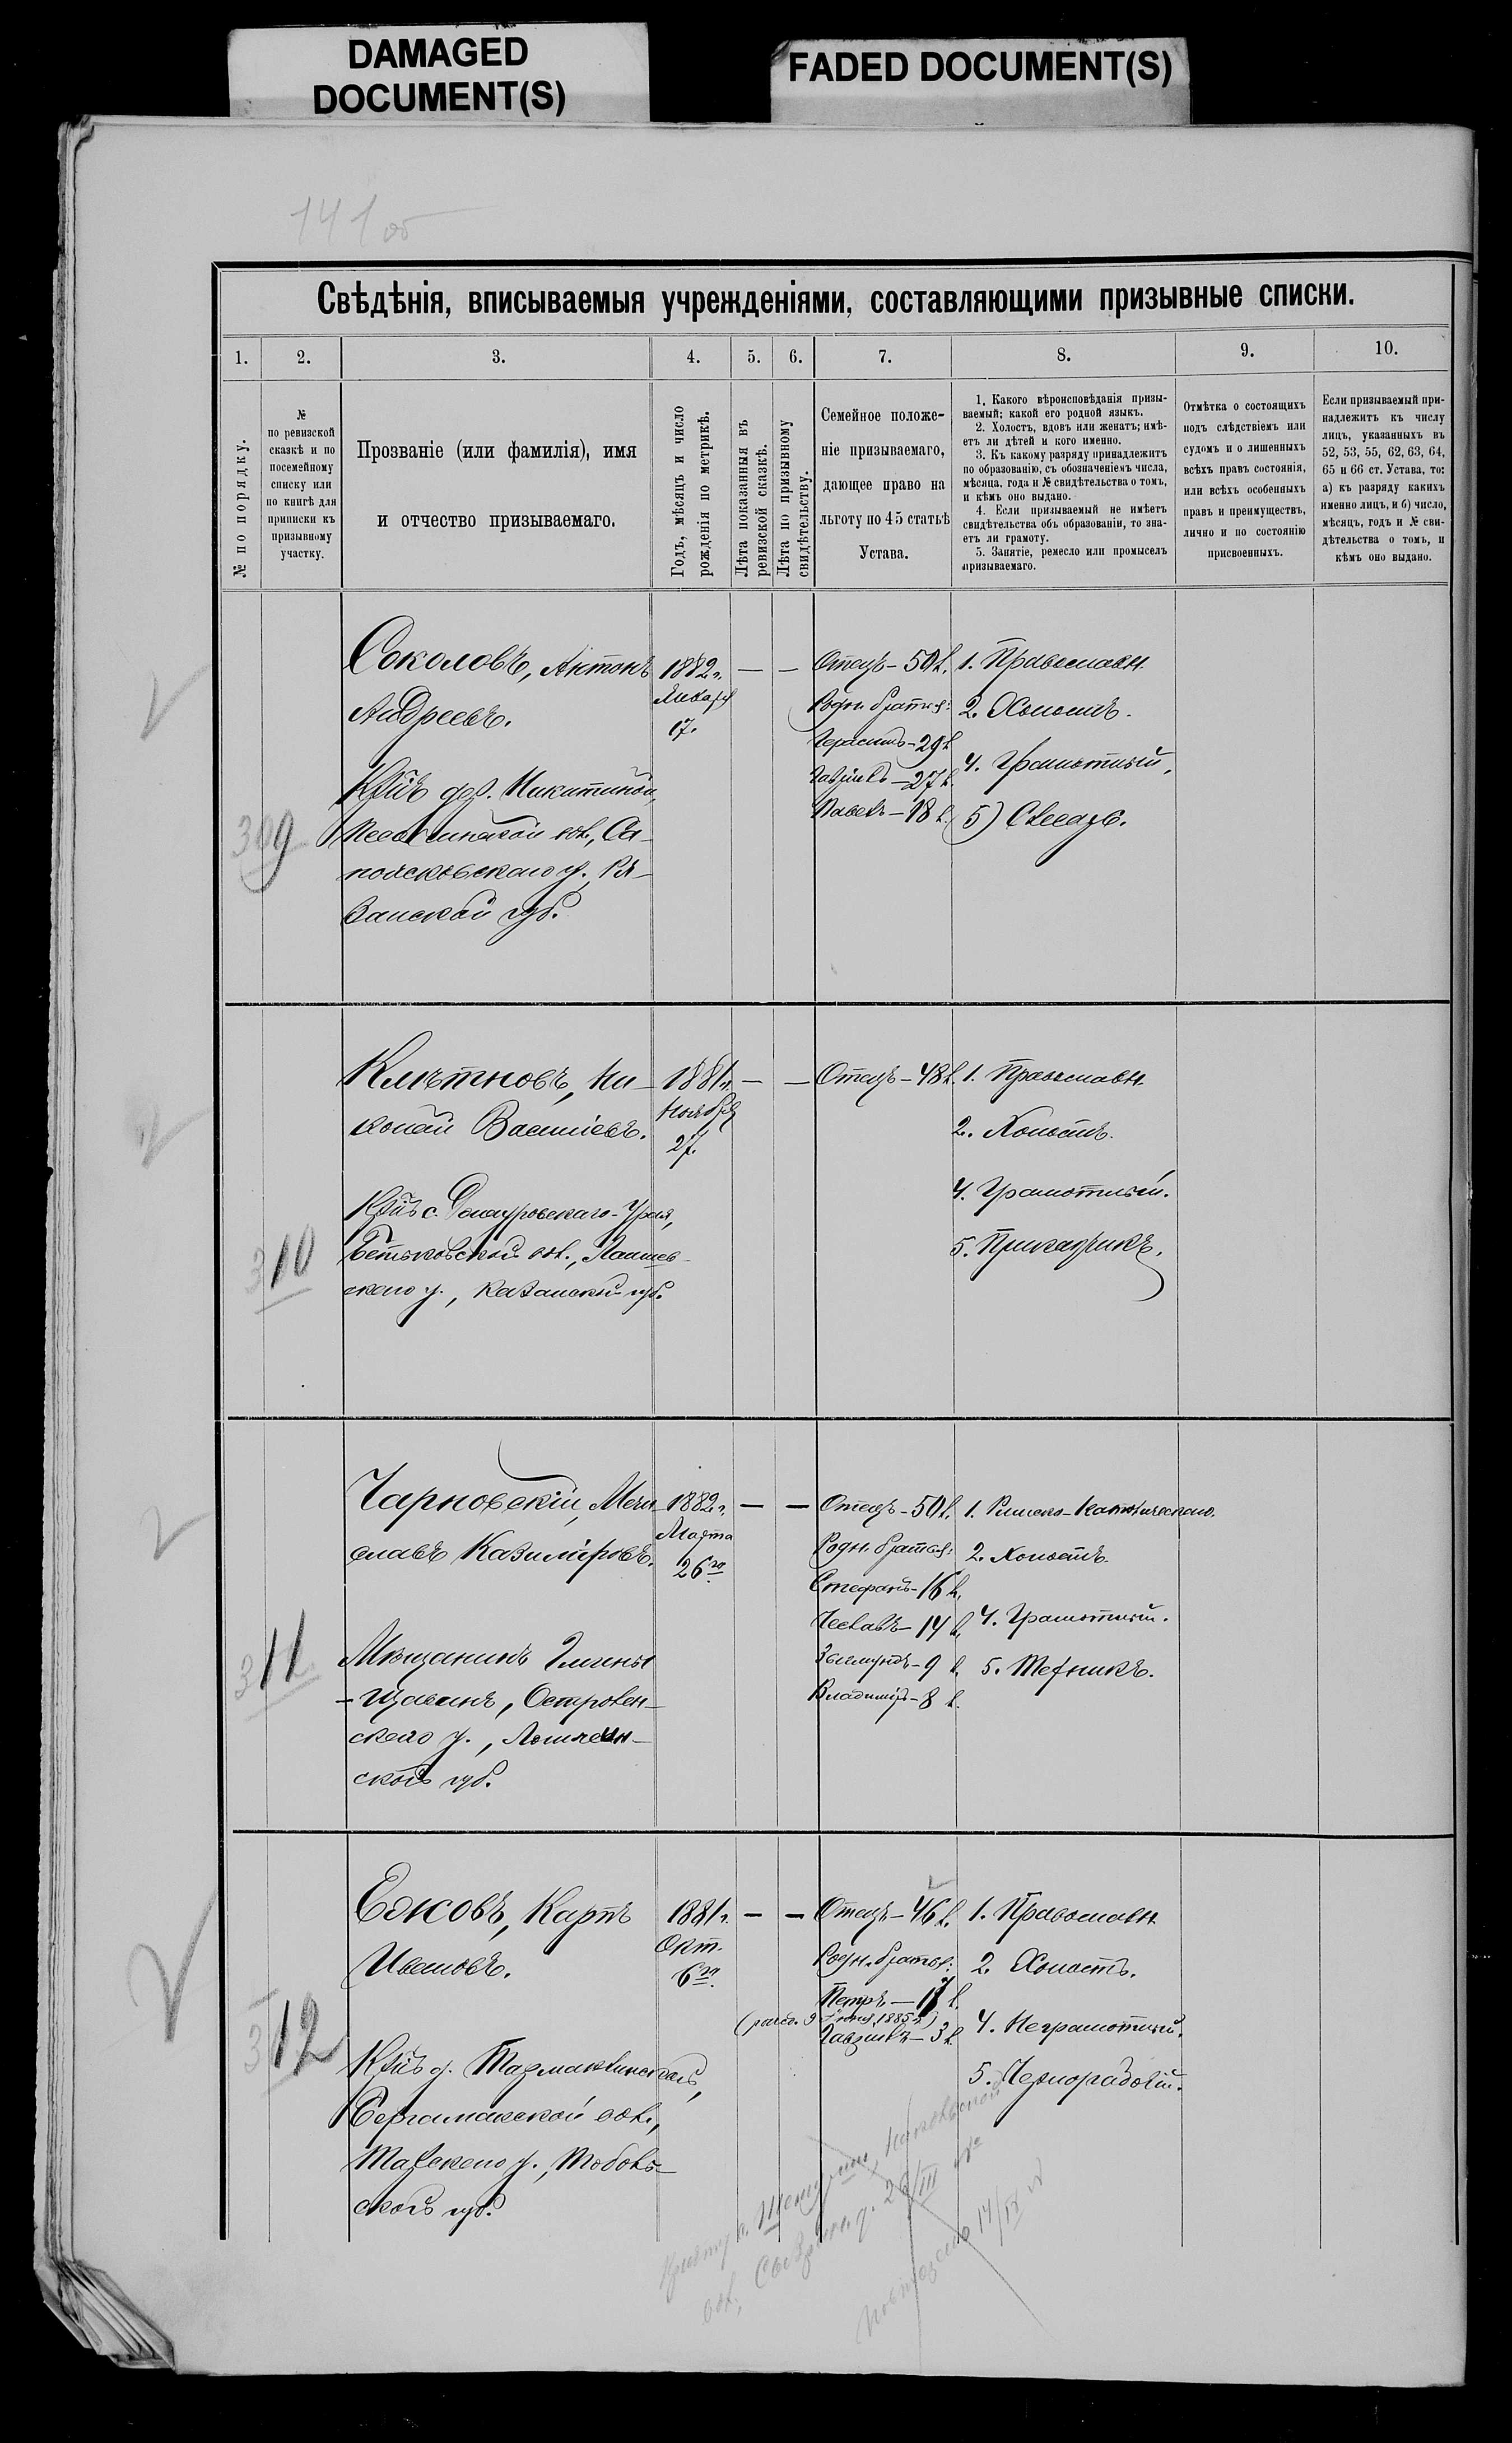 DAMAGED
DOCUMENT(S)
FADED DOCUMENT(S)
141 об
Свѣдѣнія, вписываемыя учрежденіями, составляющими призывные списки.
1. 2. 3. 4. 5. 6. 7. 8. 9. 10.
№ по порядку.
№
по ревизской
сказкѣ и по
посемейному
списку или
по книгѣ для
приписки къ
призывному
участку.
Прозваніе (или фамилія), имя
и отчество призываемаго.
Годъ, мѣсяцъ и число
рожденія по метрикѣ.
Лѣта показанныя въ
ревизской сказкѣ.
Лѣта по призывному
свидѣтельству.
Семейное положе-
ніе призываемаго,
дающее право на
льготу по 45 статьѣ
Устава.
1. Какого вѣроисповѣданія призы-
ваемый; какой его родной языкъ.
2. Холостъ, вдовъ или женатъ; имѣ-
етъ ли дѣтей и кого именно.
3. Къ какому разряду принадлежитъ
по образованію, съ обозначеніемъ числа,
мѣсяца, года и № свидѣтельства о томъ,
и кѣмъ оно выдано.
4. Если призываемый не имѣетъ
свидѣтельства объ образованіи, то зна-
етъ ли грамоту.
5. Занятіе, ремесло или промыселъ
призываемаго.
Отмѣтка о состоящихъ
подъ слѣдствіемъ или
судомъ и о лишенныхъ
всѣхъ правъ состоянія,
или всѣхъ особенныхъ
правъ и преимуществъ,
лично и по состоянію
присвоенныхъ.
Если призываемый при-
надлежитъ къ числу
лицъ, указанныхъ въ
52, 53, 55, 62, 63, 64,
65 и 66 ст. Устава, то:
а) къ разряду какихъ
именно лицъ, и б) число,
мѣсяцъ, годъ и № сви-
дѣтельства о томъ, и
кѣмъ оно выдано.
309
Соколовъ, Антонъ
Андреевъ.
Кр̃нъ дер. Никитиной,
вол., Са-
пожковскаго у., Ря-
занской губ.
1882 г.
Января
17.
— —
Отецъ – 50 л.
Родн. братья:
Герасимъ – 29 л.
Гавріилъ – 27 л.
Павелъ – 18 л.
1. Православн.
2. Холостъ.
4. Грамотный.
5) Слесарь.
310
Клѣтновъ, Ни-
колай Васильевъ.
Кр̃нъ с.
вол., Лаишев-
скаго у., Казанской губ.
1881 г.
Ноября
27.
— —
Отецъ – 48 л.
1. Православн.
2. Холостъ.
4. Грамотный.
5. Прикащикъ.
311
Чарновскій, Мечи-
славъ Казиміровъ.
Мѣщанинъ Гмины
Щавинъ, Островен-
скаго у., Ломжен-
ской губ.
1882 г.
Марта
26го
— —
Отецъ – 50 л.
Родн. братья:
Стефанъ – 16 л.
Чеславъ – 14 л.
Зыгмундъ – 9 л.
Владиміръ – 8 л.
1. Римско-Католическаго.
2. Холостъ.
4. Грамотный.
5. Мѣдникъ.
312
Ежовъ, Карпъ
Ивановъ.
Кр̃нъ д. Тармаклинской,
Бергамакской вол.,
Тарскаго у., Тоболь-
ской губ.
1881 г.
Окт.
6го
— —
Отецъ – 46 л.
Родн. братья:
Петръ – 17 л.
Гавріилъ – 3 л.
1. Православн.
2. Холостъ.
4. Неграмотный.
5. Чернорабочій.